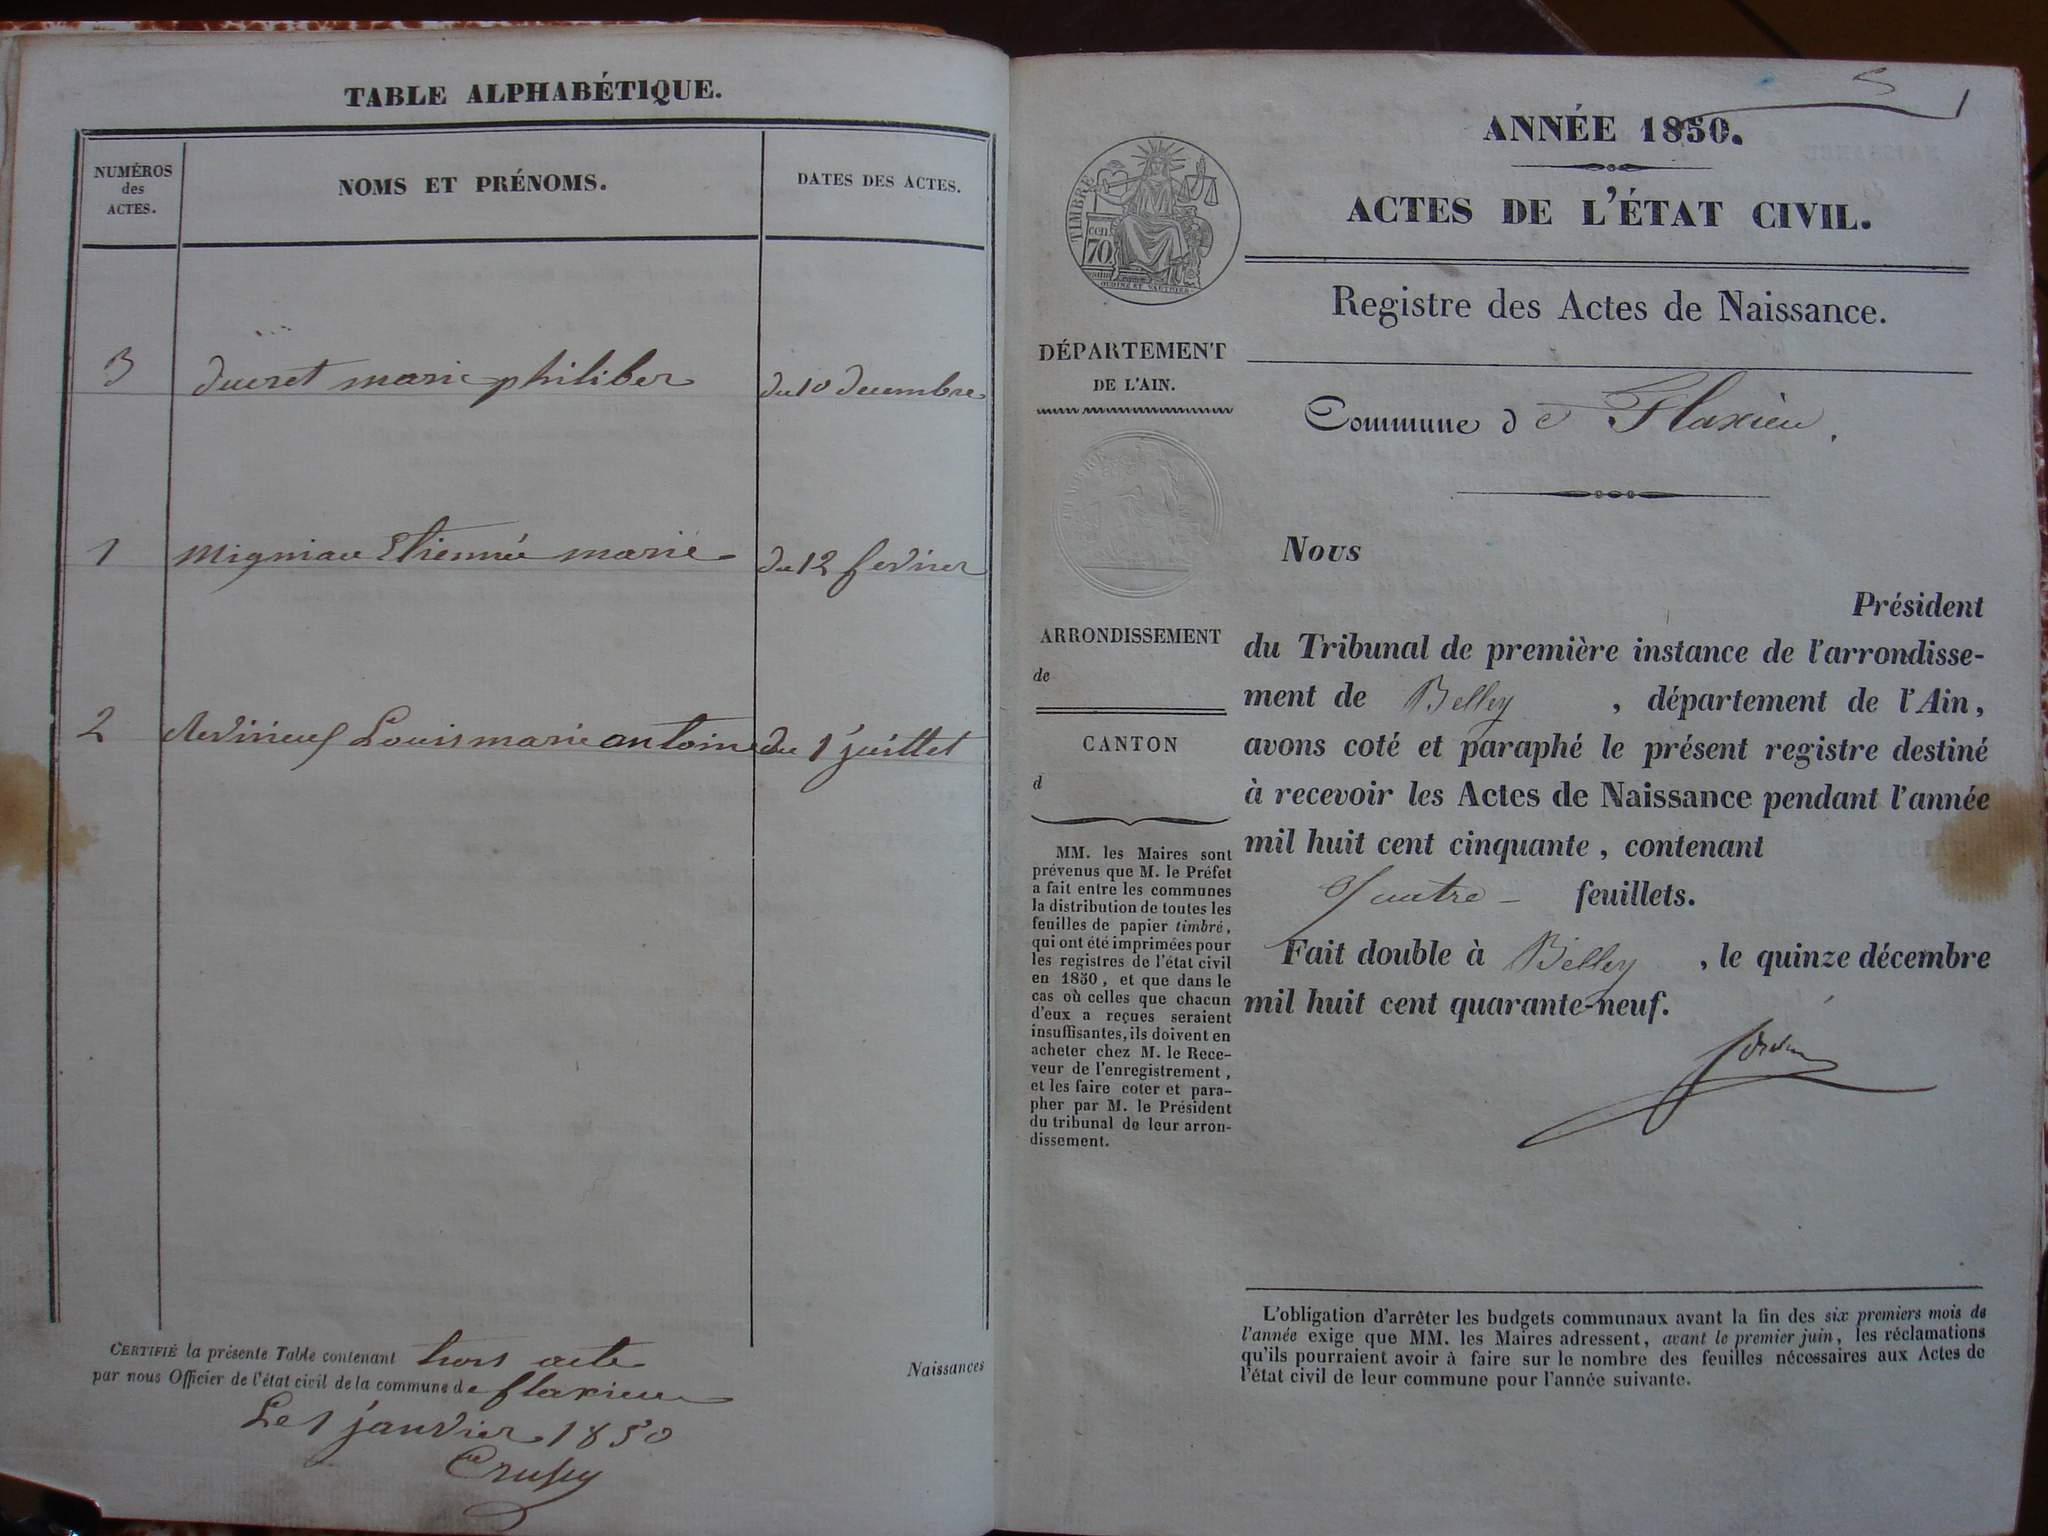 TABLE ALPHABÉTIQUE.
NUMÉROS
des
ACTES.
NOMS ET PRÉNOMS.
DATES DES ACTES.
3 ducret marie philiber du 10 decembre
1 Migniau Etiennée marie du 12 fevrier
2 Louis marie antoine du 1 juillet
CERTIFIÉ la présente Table contenant trois acte
par nous Officier de l'état civil de la commune de flaxieu
Le 1 janvier 1850
Naissances
1
ANNÉE 1850.
ACTES DE L'ÉTAT CIVIL.
Registre des Actes de Naissance.
TIMBRE
cen.
70
OUDINÉ ET VAUTHIER
DÉPARTEMENT
DE L'AIN.
Commune de Flaxieu.
Nous
Président
du Tribunal de première instance de l'arrondisse-
ment de Belley , département de l'Ain,
avons coté et paraphé le présent registre destiné
à recevoir les Actes de Naissance pendant l'année
mil huit cent cinquante, contenant
Quatre feuillets.
Fait double à Belley , le quinze décembre
mil huit cent quarante-neuf.
ARRONDISSEMENT
de
CANTON
d
MM. les Maires sont
prévenus que M. le Préfet
a fait entre les communes
la distribution de toutes les
feuilles de papier timbré,
qui ont été imprimées pour
les registres de l'état civil
en 1850, et que dans le
cas où celles que chacun
d'eux a reçues seraient
insuffisantes, ils doivent en
acheter chez M. le Rece-
veur de l'enregistrement,
et les faire coter et para-
pher par M. le Président
du tribunal de leur arron-
dissement.
L'obligation d'arrêter les budgets communaux avant la fin des six premiers mois de
l'année exige que MM. les Maires adressent, avant le premier juin, les réclamations
qu'ils pourraient avoir à faire sur le nombre des feuilles nécessaires aux Actes de
l'état civil de leur commune pour l'année suivante.